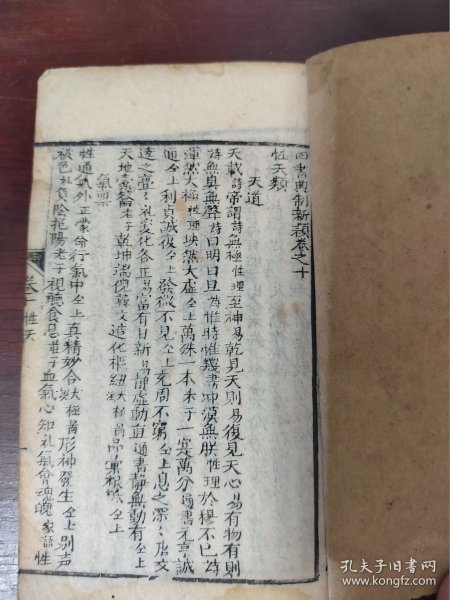 四書典制新類卷之十
性天類
天道
天載詩帝謂詩無極性理至神易乾見天則易復見天心易有物有則
詩無臭無聲詩曰明曰旦為惟時惟幾書冲漠無朕性理於穆不已詩
渾然太極性理块然太虛仝上萬殊一本朱子一實萬分通書元亨誠
通仝上利貞誠復仝上發微不見仝上充周不窮仝上息之深
達之亹禮變化各正易富有日新易靜虛動直通書靜無動有仝上
天地橐籥老子乾坤
造化樞紐
品彙根柢仝上
氣稟
性通氣外正蒙命行氣中仝上真精妙合太極
形神發生仝上別声
被色
負陰抱陽老子視聽食息莊子血氣心知礼
氣會魂魄家語性
卷十 性天
孔夫子旧书网
book.kongfz.com